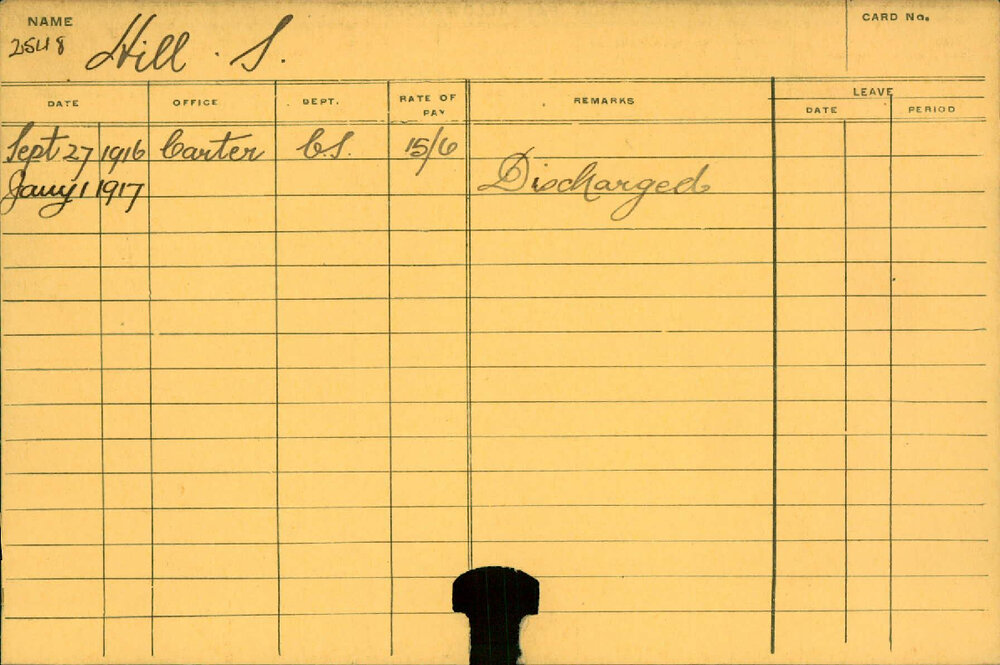 NAME
CARD No.
2548 Hill. S.
DATE OFFICE DEPT. RATE OF PAY REMARKS LEAVE
DATE PERIOD
Sept 27 1916 Carter CS. 15/6
Jany 1 1917 Discharged